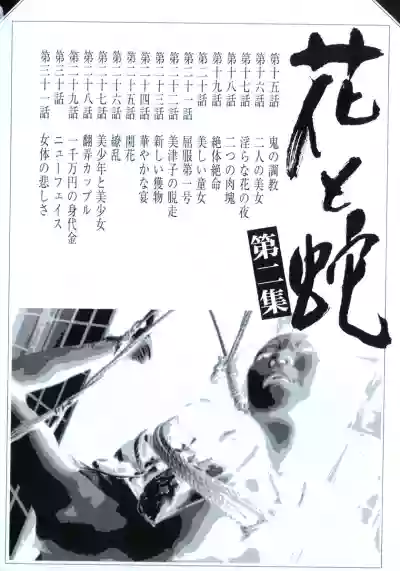 花と蛇
第二集
第十五話 鬼の調教
第十六話 二人の美女
第十七話 淫らな花の夜
第十八話 二つの肉塊
第十九話 絶体絶命
第二十話 美しい童女
第二十一話 屈服第一号
第二十二話 美津子の脱走
第二十三話 新しい獲物
第二十四話 華やかな宴
第二十五話 開花
第二十六話 繚乱
第二十七話 美少年と美少女
第二十八話 翻弄カップル
第二十九話 一千万円の身代金
第三十話 ニューフェイス
第三十一話 女体の悲しさ